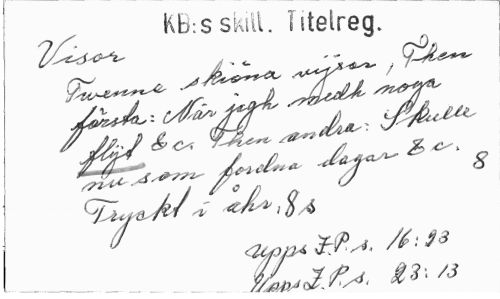 KB:s skill. Titelreg.
Visor
Twenne skiöna vijsor, Then
första: När jagh medh noga
flijt &c. Then andra: Skulle
nu som fordna dagar &c.
8
Tryckt i åhr. 8 s
Upps Z.P.s. 16:23
Upps Z.P.s. 23:13